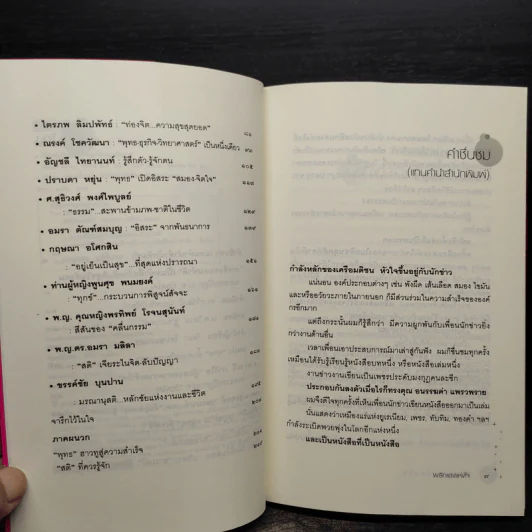 • ไตรภพ ลิมปพัทธ์ : "ท่องจิต...ความสุขสุดยอด" ๘๑
• ณรงค์ โชควัฒนา : "พุทธ-ธุรกิจ-วิทยาศาสตร์" เป็นหนึ่งเดียว ๙๑
• อัญชลี ไทยานนท์ : รู้สึกตัว-รู้จักตน ๑๐๕
• ปราบดา หยุ่น : "พุทธ" เปิดอิสระ "สมอง-จิตใจ" ๑๑๘
• ศ.สุธิวงศ์ พงศ์ไพบูลย์
: "ธรรม"...สะพานข้ามภพ-ชาติในชีวิต ๑๒๙
• อมรา ตัณฑ์สมบุญ : "อิสระ" จากพันธนาการ ๑๓๙
• กฤษณา อโศกสิน
: "อยู่เย็นเป็นสุข"...ที่สุดแห่งปรารถนา ๑๕๑
• ท่านผู้หญิงพูนศุข พนมยงค์
: "ทุกข์"...กระบวนการพิสูจน์สัจจะ ๑๖๑
• พ.ญ. คุณหญิงพรทิพย์ โรจนสุนันท์
: สีสันของ "คลื่นกรรม"
• พ.ญ.ดร.อมรา มลิลา
: "สติ" เจียระไนจิต-ลับปัญญา
• ขรรค์ชัย บุนปาน
: มรณานุสติ...หลักชัยแห่งงานและชีวิต
จารึกไว้ในใจ
ภาคผนวก
"พุทธ" ฮาวทูสู่ความสำเร็จ
"สติ" ที่ควรรู้จัก
คำชื่นชม
(แทนคำนำสำนักพิมพ์)
กำลังหลักของเครือมติชน หัวใจขึ้นอยู่กับนักข่าว
แน่นอน องค์ประกอบต่างๆ เช่น พังผืด เส้นเลือด สมอง ไขมัน
และหรืออวัยวะภายในภายนอก ก็มีส่วนร่วมในความสำเร็จขององค์
กรอีกมาก
แต่ถึงกระนั้นผมก็รู้สึกว่า มีความผูกพันกับเพื่อนนักข่าวยิ่ง
กว่างานด้านอื่น
เวลาเพื่อนเอาประสบการณ์มาเล่าสู่กันฟัง ผมก็ชื่นชมทุกครั้ง
เหมือนได้รับรู้เรียนรู้หนังสือบทหนึ่ง หรือหนังสือเล่มหนึ่ง
งานข่าวงานเขียนเป็นเพชรประดับมงกุฎคนละซีก
ประกอบกันลงตัวเมื่อไรก็ทรงคุณ อนรรฆค่า แพรวพราย
ผมจึงดีใจทุกครั้งที่เห็นเพื่อนนักข่าวเขียนหนังสือออกมาเป็นเล่ม
นั่นแสดงว่าเหมืองแร่แห่งยูเรเนียม, เพชร, ทับทิม, ทองคำ ฯลฯ
กำลังระเบิดพวยพุ่งในโลกอีกแห่งหนึ่ง
และเป็นหนังสือที่เป็นหนังสือ
พลิกแสงแห่งหัว ๗